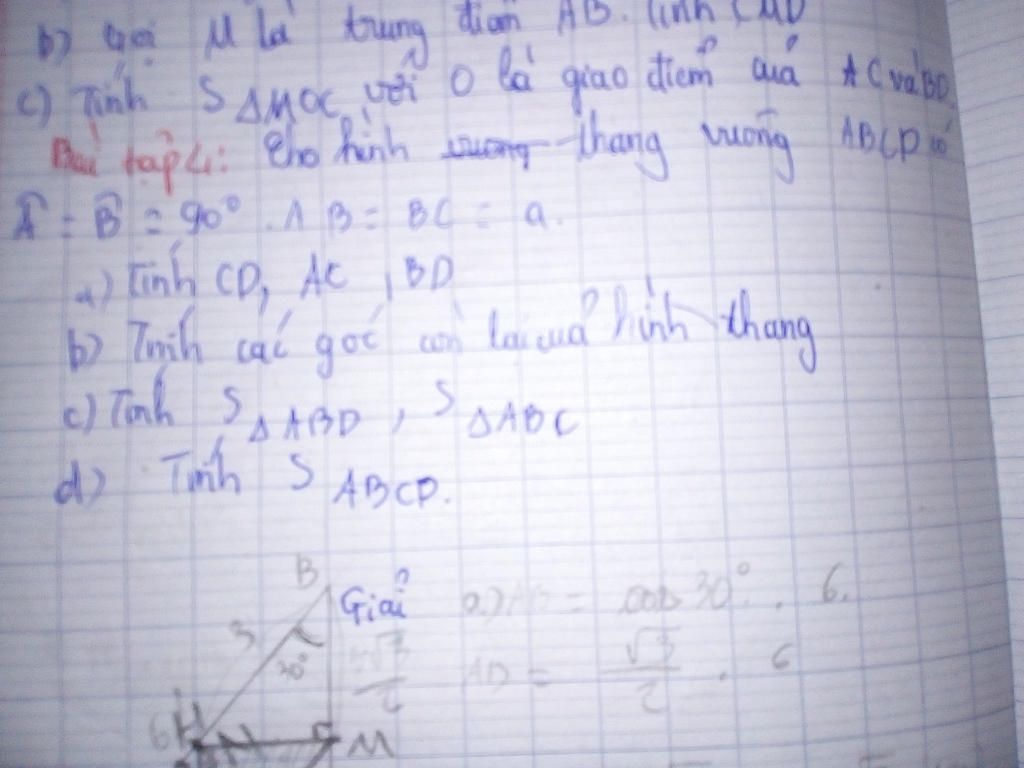 b) Gọi M là trung điểm AB. Tính CMD
c) Tính S ΔMOC với O là giao điểm của AC và BD.
Bài tập 4: Cho hình vuông thang vuông ABCD có
Â = B̂ = 90°. AB = BC = a.
a) Tính CD, AC, BD
b) Tính các góc còn lại của hình thang
c) Tính S ΔABD, S ΔABC
d) Tính S ABCD.
B
Giải a) AB = cos 30°. 6.
3
30° √3/2 AD = √3/2 . 6
6 H M